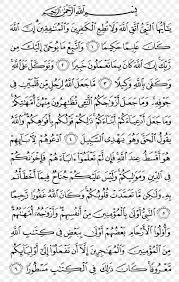 بِسْمِ ٱللَّهِ ٱلرَّحْمَٰنِ ٱلرَّحِيمِ
يَٰٓأَيُّهَا ٱلنَّبِيُّ ٱتَّقِ ٱللَّهَ وَلَا تُطِعِ ٱلْكَٰفِرِينَ وَٱلْمُنَٰفِقِينَ إِنَّ ٱللَّهَ
كَانَ عَلِيمًا حَكِيمًا ١ وَٱتَّبِعْ مَا يُوحَىٰٓ إِلَيْكَ مِن
رَّبِّكَ إِنَّ ٱللَّهَ كَانَ بِمَا تَعْمَلُونَ خَبِيرًا ٢ وَتَوَكَّلْ عَلَى
ٱللَّهِ وَكَفَىٰ بِٱللَّهِ وَكِيلًا ٣ مَّا جَعَلَ ٱللَّهُ لِرَجُلٍ مِّن قَلْبَيْنِ فِي
جَوْفِهِۦ وَمَا جَعَلَ أَزْوَٰجَكُمُ ٱلَّٰٓـِٔي تُظَٰهِرُونَ مِنْهُنَّ أُمَّهَٰتِكُمْ
وَمَا جَعَلَ أَدْعِيَآءَكُمْ أَبْنَآءَكُمْ ذَٰلِكُمْ قَوْلُكُم بِأَفْوَٰهِكُمْ وَٱللَّهُ
يَقُولُ ٱلْحَقَّ وَهُوَ يَهْدِي ٱلسَّبِيلَ ٤ ٱدْعُوهُمْ لِأٓبَآئِهِمْ
هُوَ أَقْسَطُ عِندَ ٱللَّهِ فَإِن لَّمْ تَعْلَمُوٓا۟ ءَابَآءَهُمْ فَإِخْوَٰنُكُمْ
فِي ٱلدِّينِ وَمَوَٰلِيكُمْ وَلَيْسَ عَلَيْكُمْ جُنَاحٌ فِيمَآ أَخْطَأْتُم
بِهِۦ وَلَٰكِن مَّا تَعَمَّدَتْ قُلُوبُكُمْ وَكَانَ ٱللَّهُ غَفُورًا رَّحِيمًا
٥ ٱلنَّبِيُّ أَوْلَىٰ بِٱلْمُؤْمِنِينَ مِنْ أَنفُسِهِمْ وَأَزْوَٰجُهُۥٓ أُمَّهَٰتُهُمْ
وَأُو۟لُوا۟ ٱلْأَرْحَامِ بَعْضُهُمْ أَوْلَىٰ بِبَعْضٍ فِي كِتَٰبِ ٱللَّهِ
مِنَ ٱلْمُؤْمِنِينَ وَٱلْمُهَٰجِرِينَ إِلَّآ أَن تَفْعَلُوٓا۟ إِلَىٰٓ أَوْلِيَآئِكُم
مَّعْرُوفًا كَانَ ذَٰلِكَ فِي ٱلْكِتَٰبِ مَسْطُورًا ٦